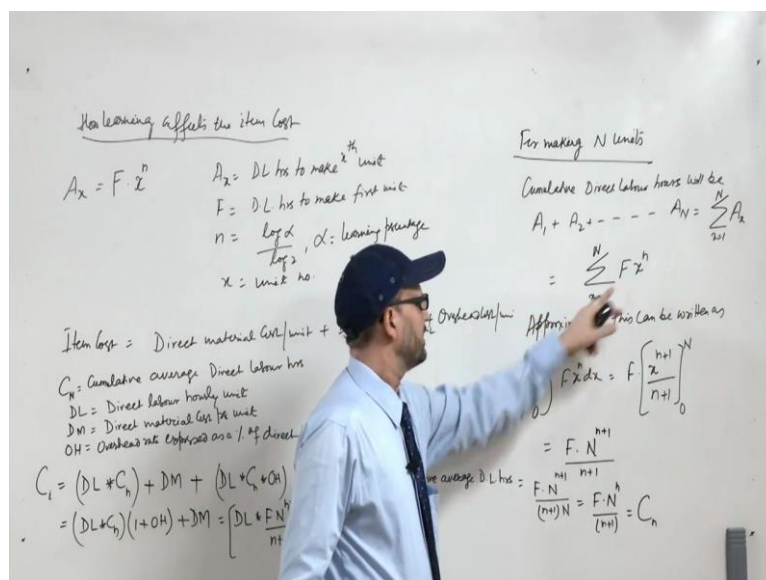 How learning affects the item Cost
Aₓ = F·xⁿ
Aₓ = DL hrs to make xᵗʰ unit
F = DL hrs to make first unit
n = log α / log 2, α = learning percentage
x = unit no.
Item Cost = Direct material Cost/unit + Overhead cost/uni
C_N = Cumulative average Direct Labour hrs
DL = Direct labour hourly unit
DM = Direct material Cost per unit
OH = Overhead rate expressed as a % of direct
= (DL*Cₙ) + DM + (DL*Cₙ*OH)
= (DL*Cₙ)(1+OH) + DM = [DL*
For making N units
Cumulative Direct Labour hours will be
A₁ + A₂ + - - - - A_N = Σ_{x=1}^{N} Aₓ
= Σ^{N} Fxⁿ
This can be written as
Fxⁿdx = F·[x^{n+1}/(n+1)]₀^N
= F·N^{n+1}/(n+1)
average D.L hrs = F·N^{n+1}/((n+1)N) = F·Nⁿ/(n+1) = Cₙ